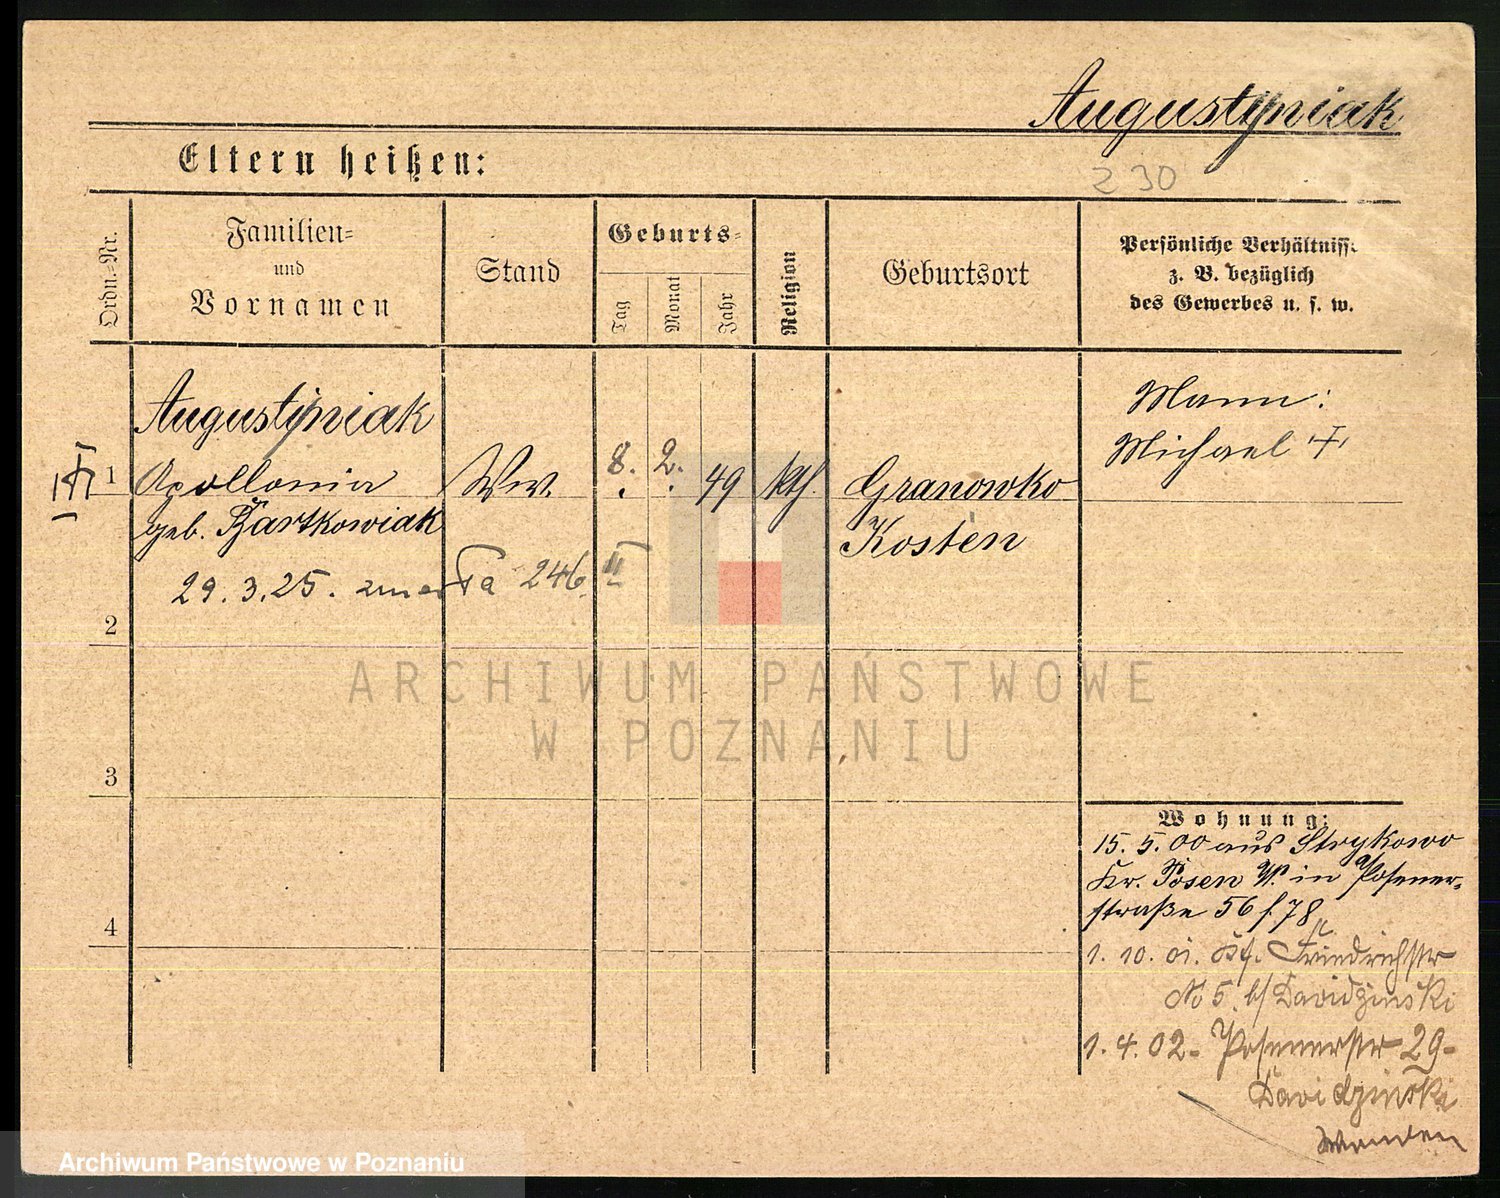 Augustyniak
Eltern heißen:
230
Ordn.=Nr.
Familien=
und
Vornamen
Stand
Geburts=
Tag
Monat
Jahr
Religion
Geburtsort
Persönliche Verhältnisse
z. B. bezüglich
des Gewerbes u. s. w.
1
Augustyniak
Apollonia
geb. Bartkowiak
Ww.
8. 2. 49
kth.
Granowko
Kosten
Mann:
Michael †
29. 3. 25. zmarła 246 II
2
ARCHIWUM PAŃSTWOWE
W POZNANIU
3
4
Wohnung:
15. 5. 00 aus Strykowo
Kr. Posen W. in Posener-
straße 56 f. 78
1. 10. 01. Friedrichstr
No 5. b/ Davidzinski
1. 4. 02 - Posenerstr 29-
Davidzinski
Wenden
Archiwum Państwowe w Poznaniu